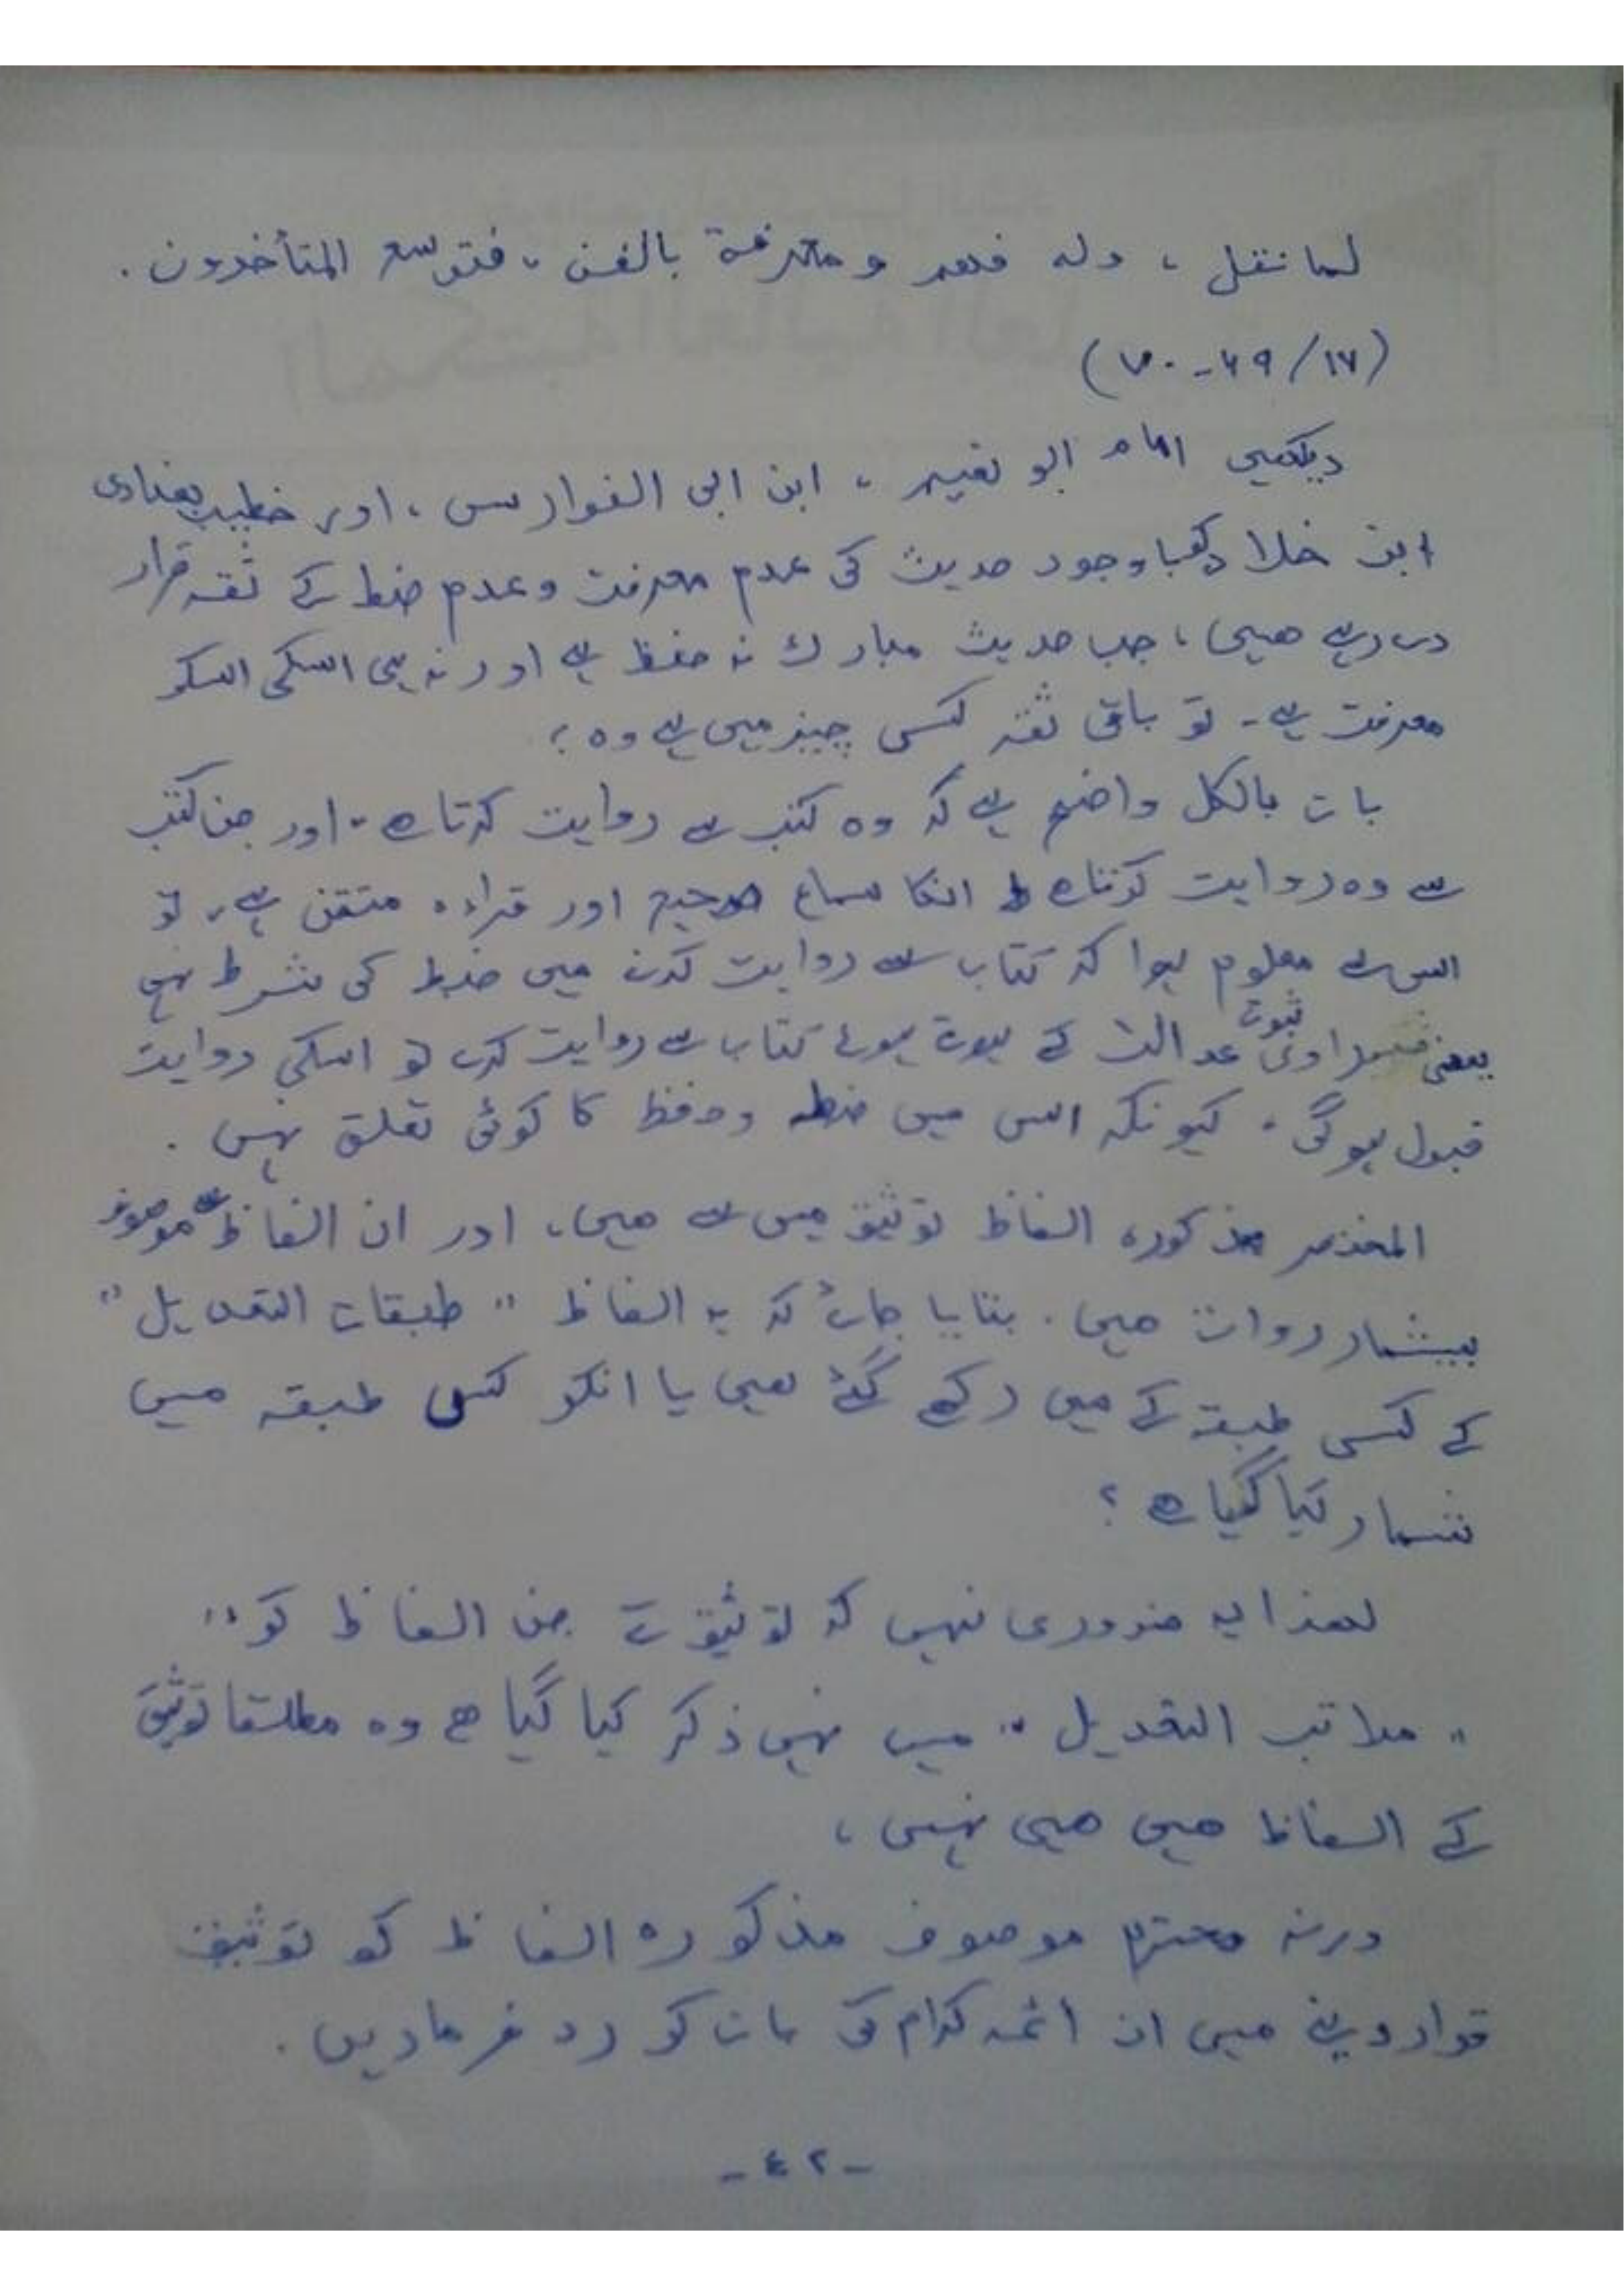 لما نقل ، وله فهم و معرفة بالفن ، فتوسع المتأخرون .
(١٦/ ٦٩ - ٧٠)
دیکھیں امام ابو نعیم ، ابن ابی الفوارس ، اور خطیب بغدادی
ابن خلاد کو باوجود حدیث کی عدم معرفت و عدم ضبط کے ثقہ قرار
دے رہے ھیں ، جب حدیث مبارک نہ حفظ ہے اور نہ ہی اسکی اسکو
معرفت ہے - تو باقی ثقہ کس چیز میں ہے وہ ؟
بات بالکل واضح ہے کہ وہ کتب سے روایت کرتا ہے - اور جن کتب
سے وہ روایت کرتا ھے انکا سماع صحیح اور قراءہ متقن ہے ، تو
اس سے معلوم ہوا کہ کتاب سے روایت کرنے میں ضبط کی شرط نہیں
یعنی راوی ثبوت عدالت کے ہوتے ہوئے کتاب سے روایت کرے تو اسکی روایت
قبول ہوگی ، کیونکہ اس میں ضبط وحفظ کا کوئی تعلق نہیں .
المختصر مذکورہ الفاظ توثیق میں سے ھیں ، اور ان الفاظ سے موصوف
بیشمار روات ھیں . بتایا جائے کہ یہ الفاظ " طبقات التعدیل "
کے کسی طبقہ کے میں رکھے گئے ھیں یا انکو کسی طبقہ میں
شمار کیا گیا ھے ؟
لھذا یہ ضروری نہیں کہ توثیق کے جن الفاظ کو "
" مراتب التعدیل " میں نہیں ذکر کیا گیا ھے وہ مطلقا توثیق
کے الفاظ ھیں ھی نہیں ،
ورنہ محترم موصوف مذکورہ الفاظ کو توثیق
قرار دینے میں ان ائمہ کرام کی بات کو رد فرمادیں .
- ٤٢ -